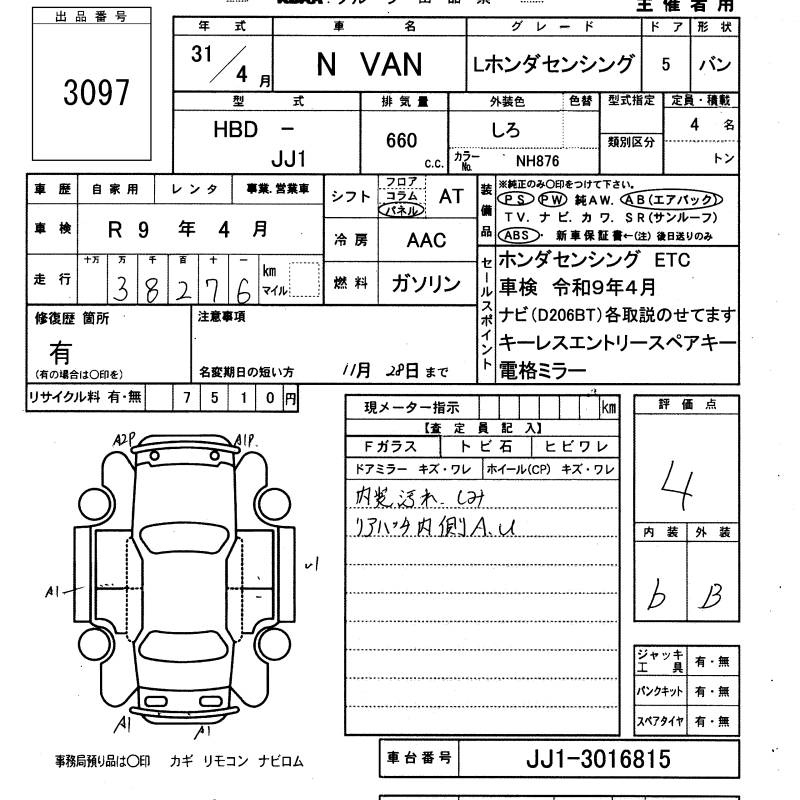 主催者用
出品番号
3097
年式 車名 グレード ドア 形状
31/4月 N VAN Lホンダセンシング 5 バン
型式 排気量 外装色 色替 型式指定 定員・積載
HBD - JJ1
660 c.c.
しろ
カラーNo. NH876
類別区分
4 名
トン
車歴 自家用 レンタ 事業.営業車
車検 R 9 年 4 月
走行 十万 万 千 百 十 一 km マイル
38276
シフト フロア コラム パネル AT
冷房 AAC
燃料 ガソリン
装備品
※純正のみ〇印をつけて下さい。
PS PW 純AW. AB(エアバック)
TV. ナビ. カワ. SR(サンルーフ)
ABS・ 新車保証書←(注) 後日送りのみ
セールスポイント
ホンダセンシング ETC
車検 令和9年4月
ナビ(D206BT)各取説のせてます
キーレスエントリースペアキー
電格ミラー
修復歴 箇所
有
(有の場合は〇印を)
注意事項
名変期日の短い方 11月 28日 まで
リサイクル料 有・無 7510円
現メーター指示 km
【査定員記入】
Fガラス トビ石 ヒビワレ
ドアミラー キズ・ワレ ホイール(CP) キズ・ワレ
内装汚れ.しみ
リアハッチ内側A.U
評価点
4
内装 外装
b B
A2P A1P.
A1
A1 A1
ジャッキ工具 有・無
パンクキット 有・無
スペアタイヤ 有・無
事務局預り品は〇印 カギ リモコン ナビロム
車台番号 JJ1-3016815